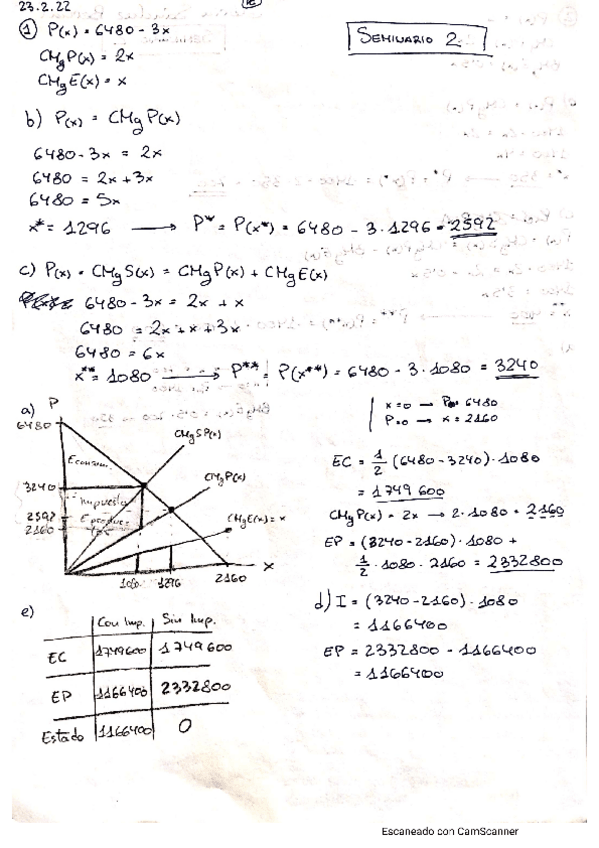 23.2.22
SEMINARIO 2
① P(x) = 6480 - 3x
CMgP(x) = 2x
CMgE(x) = x
b) P(x) = CMgP(x)
6480 - 3x = 2x
6480 = 2x + 3x
6480 = 5x
x* = 1296 → P* = P(x*) = 6480 - 3·1296 = 2592
c) P(x) = CMgS(x) = CMgP(x) + CMgE(x)
6480 - 3x = 2x + x
6480 = 2x + x + 3x
6480 = 6x
x** = 1080 → P** = P(x**) = 6480 - 3·1080 = 3240
a) P
6480
3240
2592
2160
CMgSP(x)
CMgP(x)
CMgE(x) = x
Econsum.
Impuesto
Eproduc
1080 1296 2160 x
x=0 → P= 6480
P=0 → x = 2160
EC = 1/2 (6480 - 3240)·1080
= 1749600
CMgP(x) = 2x → 2·1080 = 2160
EP = (3240 - 2160)·1080 +
1/2 · 1080 · 2160 = 2332800
d) I = (3240 - 2160)·1080
= 1166400
EP = 2332800 - 1166400
= 1166400
e)
Con Imp. Sin Imp.
EC 1749600 1749600
EP 1166400 2332800
Estado 1166400 0
Escaneado con CamScanner